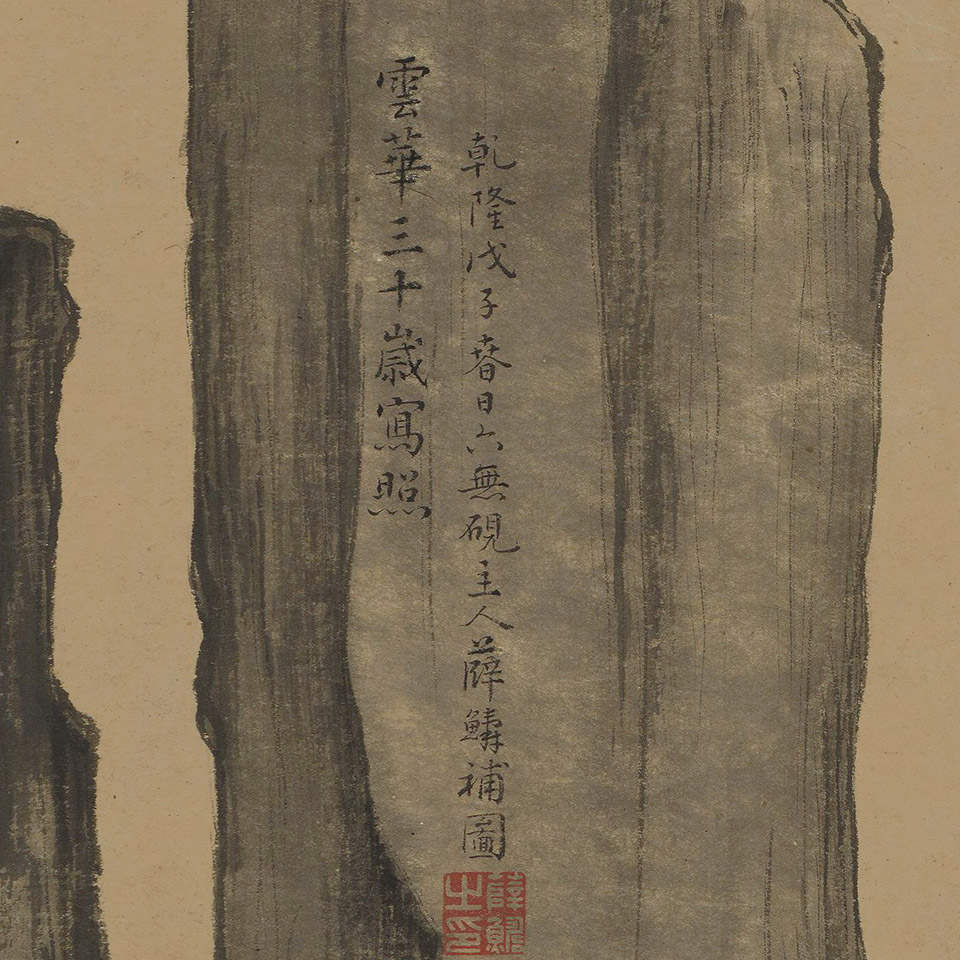 乾隆戊子春日六無硯主人薛鱗補圖
雲華三十歲寫照
薛鱗之印